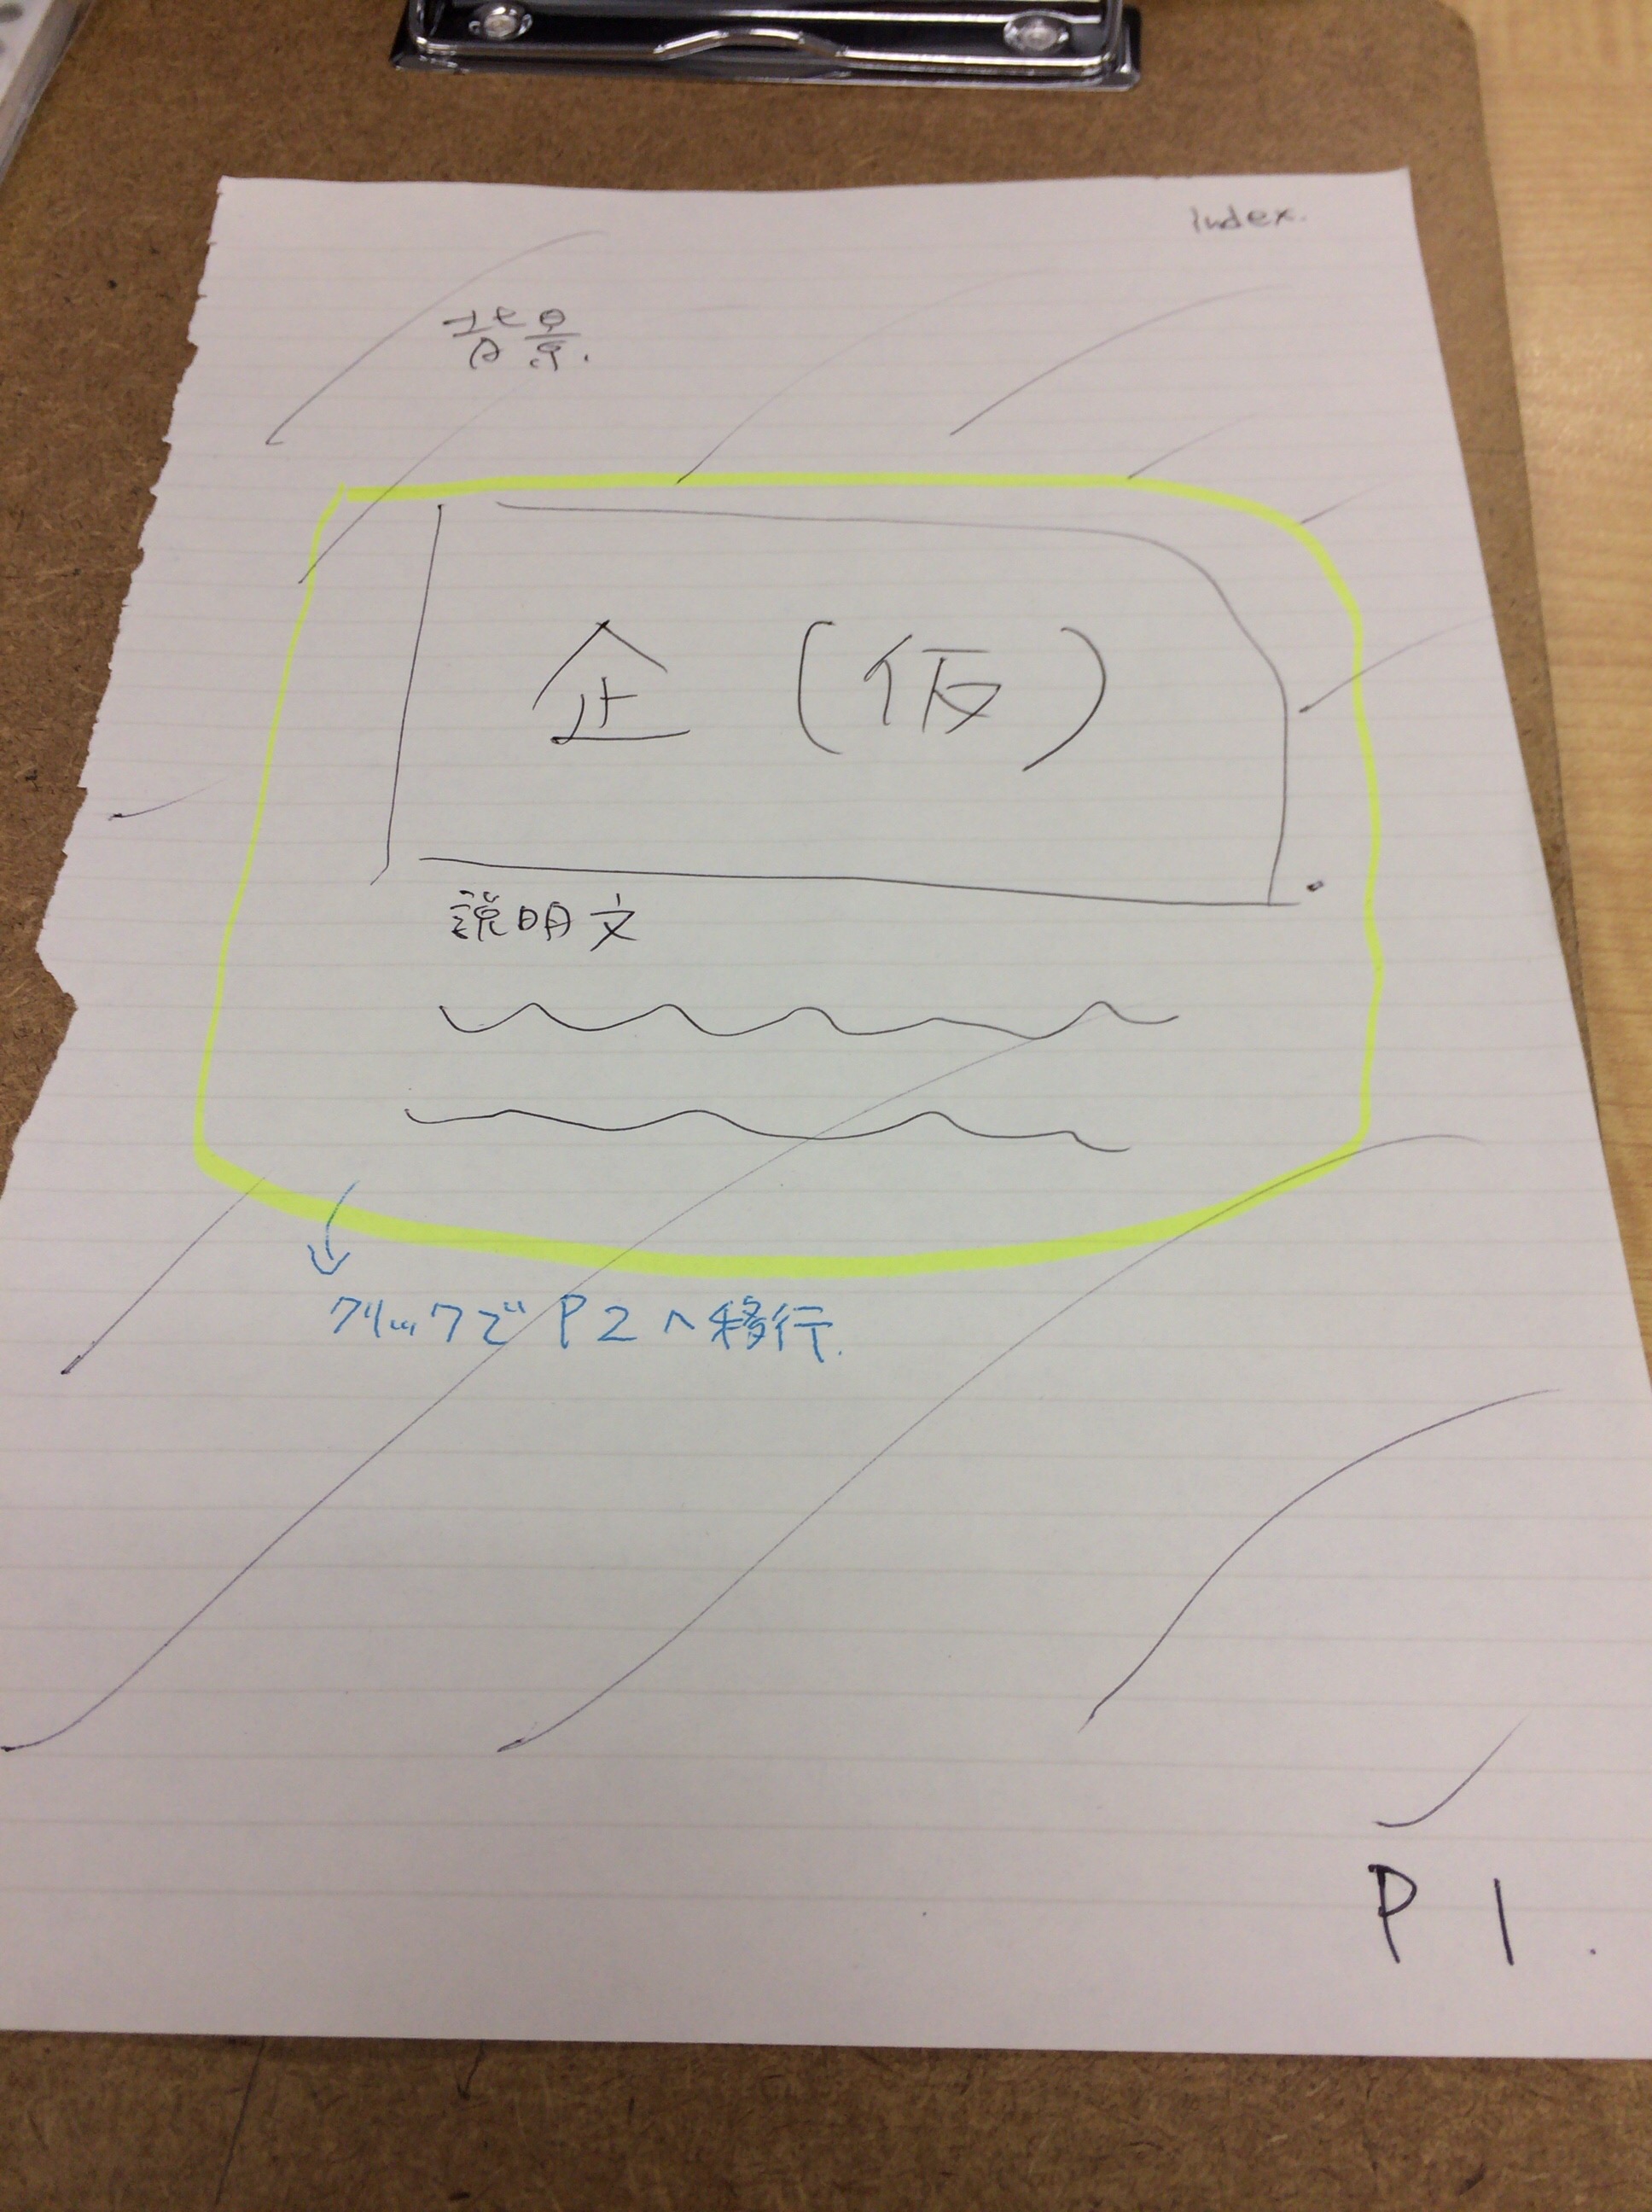 Index.
背景.
企 (仮)
説明文
クリックで P2へ移行.
P1.